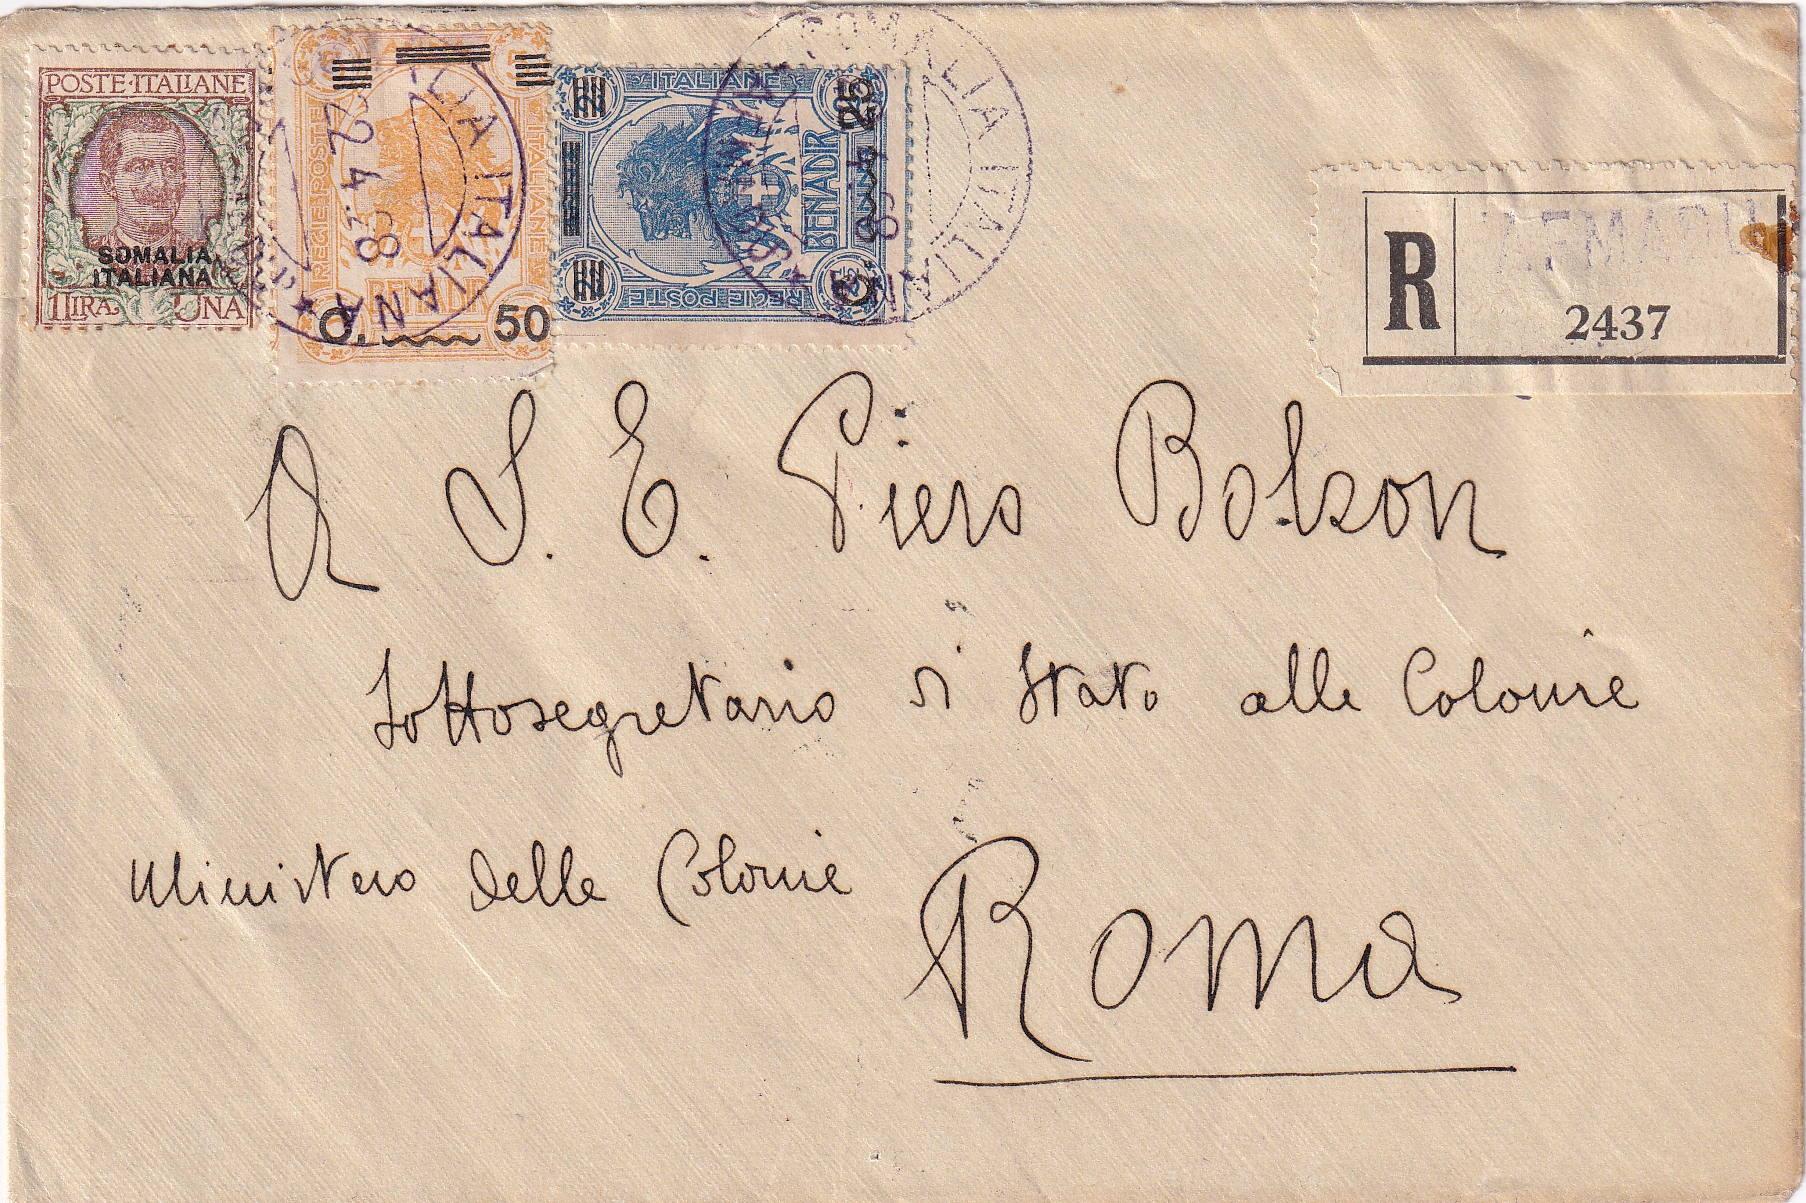 POSTE·ITALIANE
SOMALIA
ITALIANA
1 LIRA UNA
REGIE POSTE
ITALIANE
BENADIR
C. 50
ITALIANE
BENADR
REGIE POSTE
C. 25
SOMALIA ITALIANA
22 4 28
SOMALIA ITALIANA
AFMADU
R
2437
A S. E. Piero Bolzon
Sottosegretario di Stato alle Colonie
Ministero delle Colonie
Roma